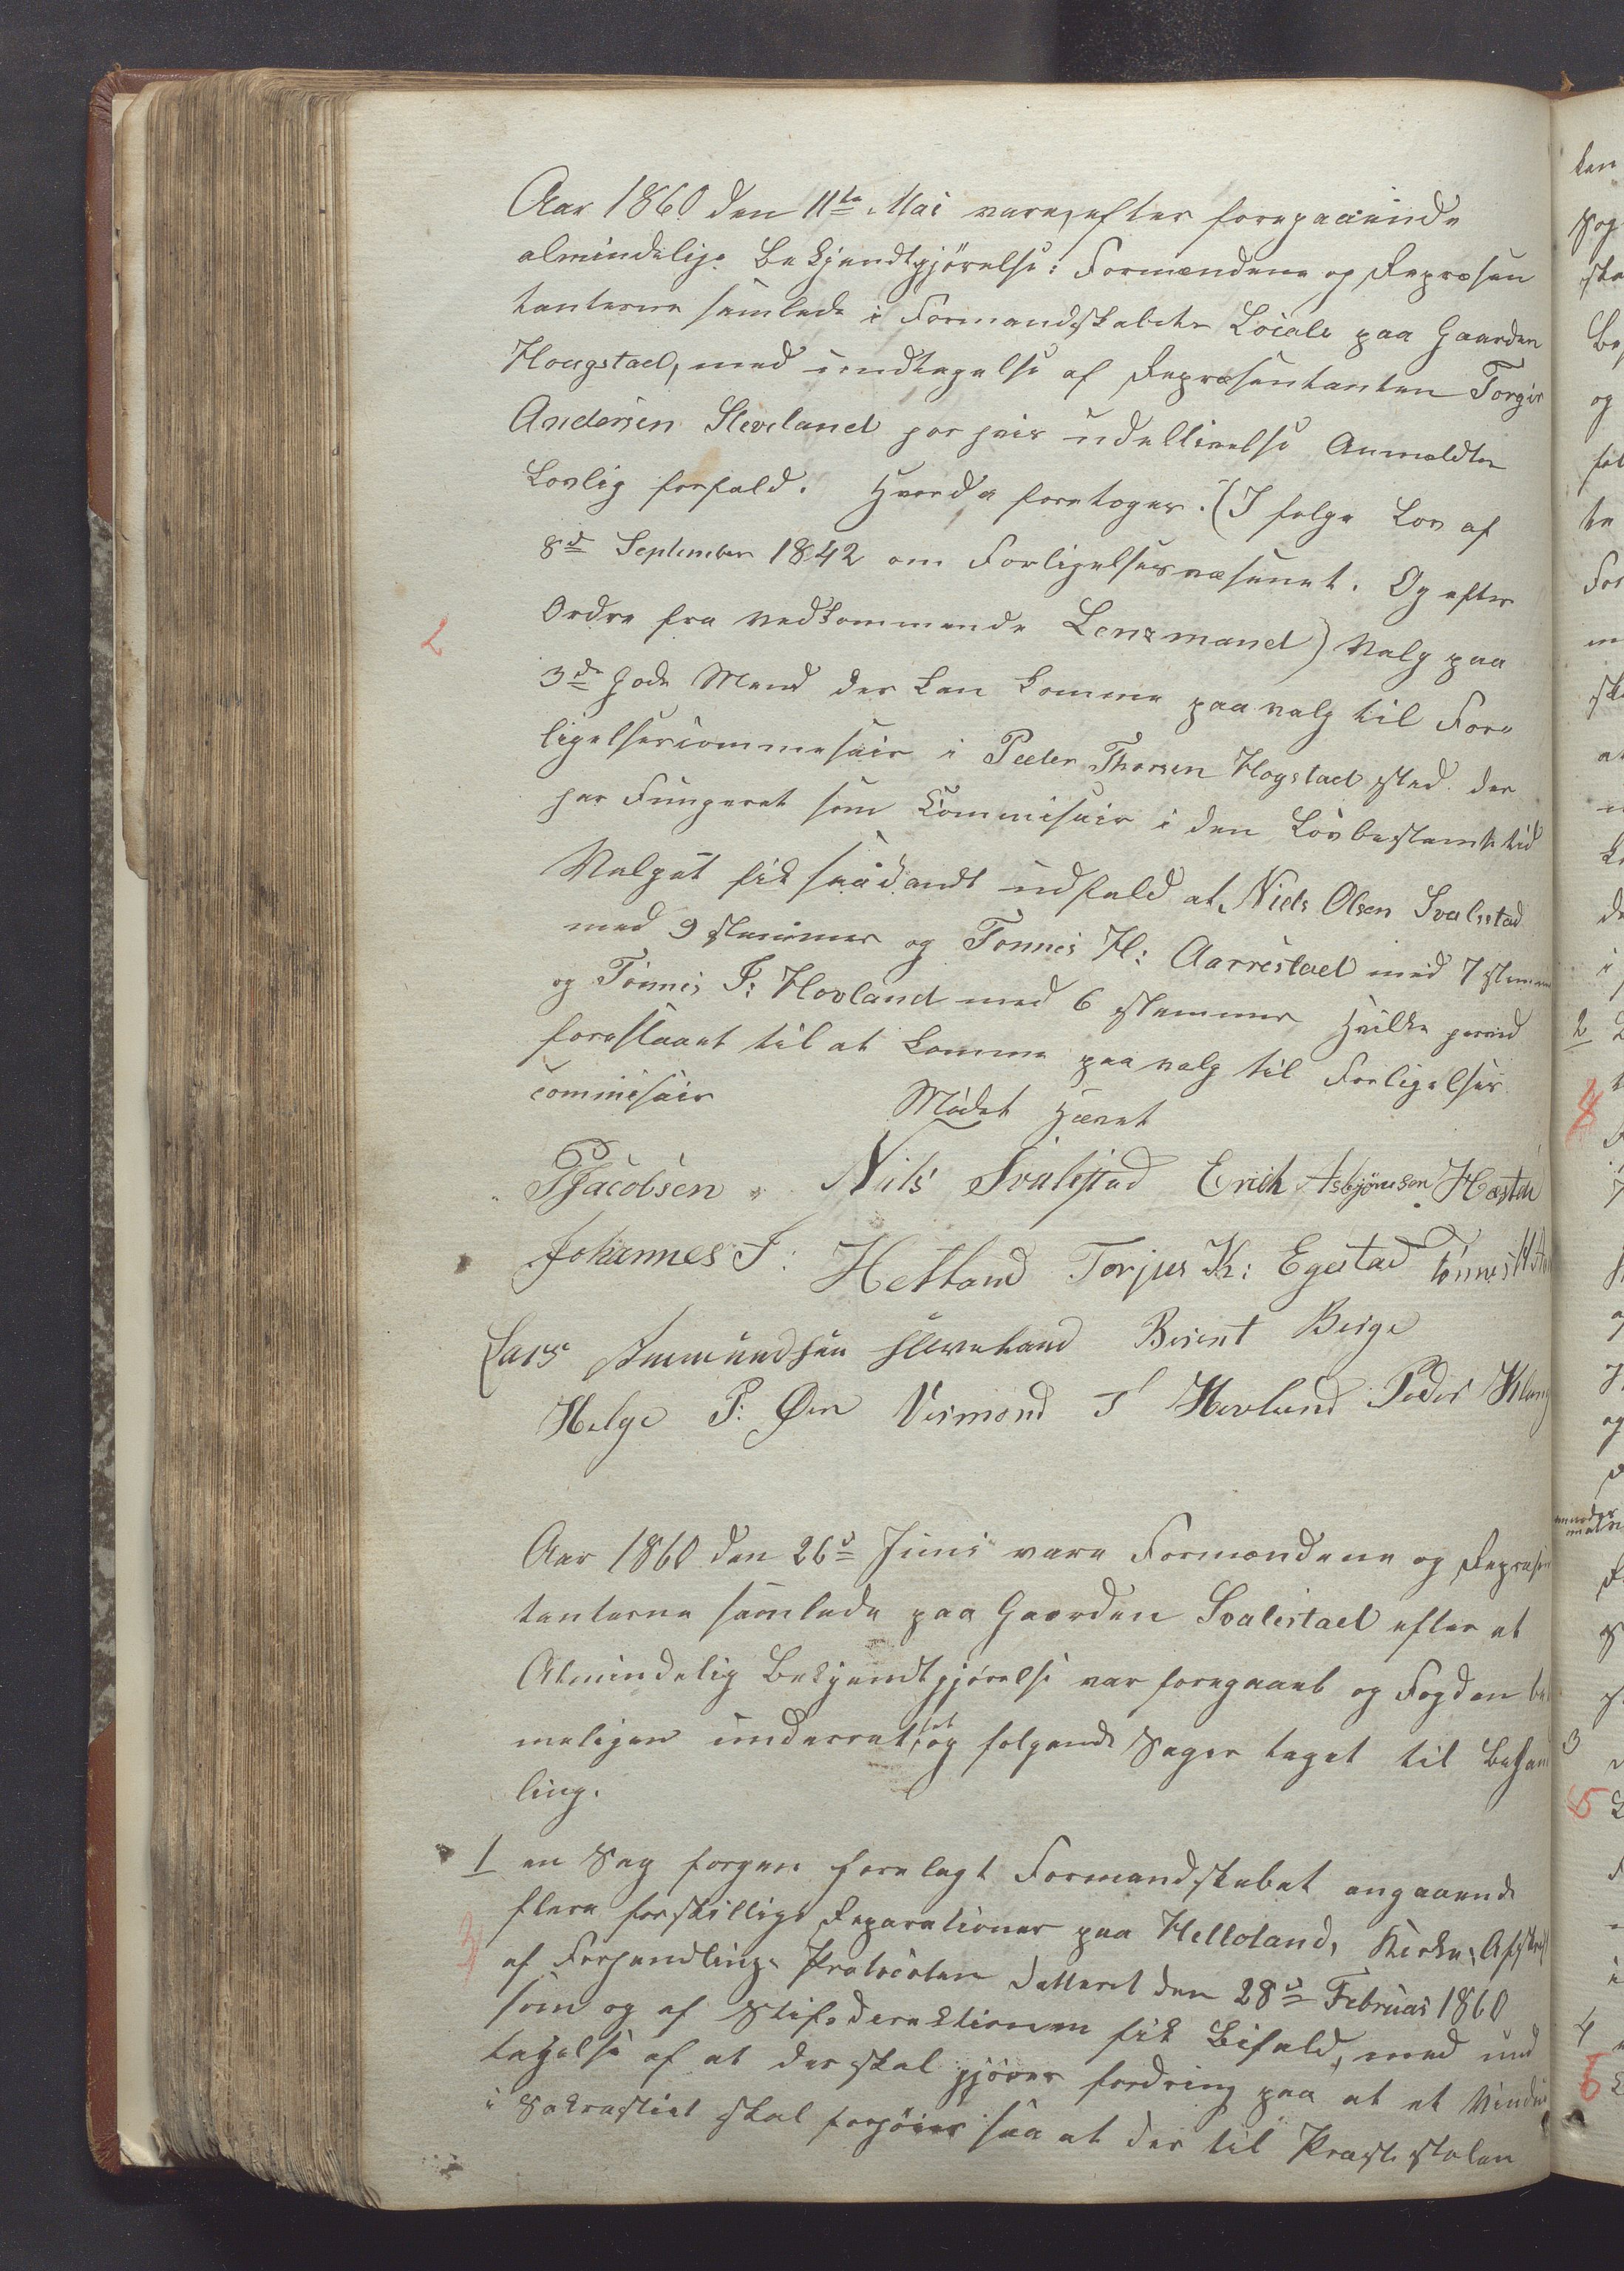 Aar 1860 den 11te Mai vare, efter foregaaende
almindelige Bekjendtgjörelse: Formændene og Repræsen
tanterne samlede i Formandskabets Locale paa Gaarden
Hougstad, med undtagelse af Repræsentanten Torger
Andersen Sleveland for hvis udeblivelse Anmeldtes
Lovlig forfald. Hvorda foretoges. (I følge Lov af
8de September 1842 om Forligelsesvæsenet. Og efter
Ordre fra vedkommende Lensmand) Valg paa
2
3de gode Mend der kan komme paa valg til For-
ligelsescommesair i Peder Thorsen Hogstad sted der
har Fungeret som Commisair i den Lovbestemte tid
Valget fik saadandt udfald at Niels Olsen Svalestad
med 9 stemmer og Tønnes H: Aarrestad med 7 stemmer
og Tönnes F: Hovland med 6 stemmer Hvilke herved
foreslaaet til at komme paa valg til Forligelses
commisair
Mödet Hævet
Jacobsen Nils Svalestad Erich Asbjörnson
Johannes J: Hetland Torjus K: Egestad Tönnes H
Lars Amundsen Sleveland Berent Berge
Helge P: Øen Vermond T Hovland Peder
Aar 1860 den 26de Juni vare Formændene og Repræsen
tanterne samlede paa Gaarden Svalestad efter at
Almindelig Bekjendtgjørelse var foregaaet og Fogden be
meligen underrettet, og følgende Sager taget til Behand
ling.
1 en Sag forgen forelagt Formandskabet angaaende
flere forskillige Reparationer paa Helleland, Kirke, Afskrift
af Forhandlings Protocolen datteret den 28de Februar 1860
som og af Stifsderektionen fik Bifald, med und
tagelse af at der skal gjöres fordring paa at et Vindue
i Sakrastiet skal forhöies saa at der til Præstestolen